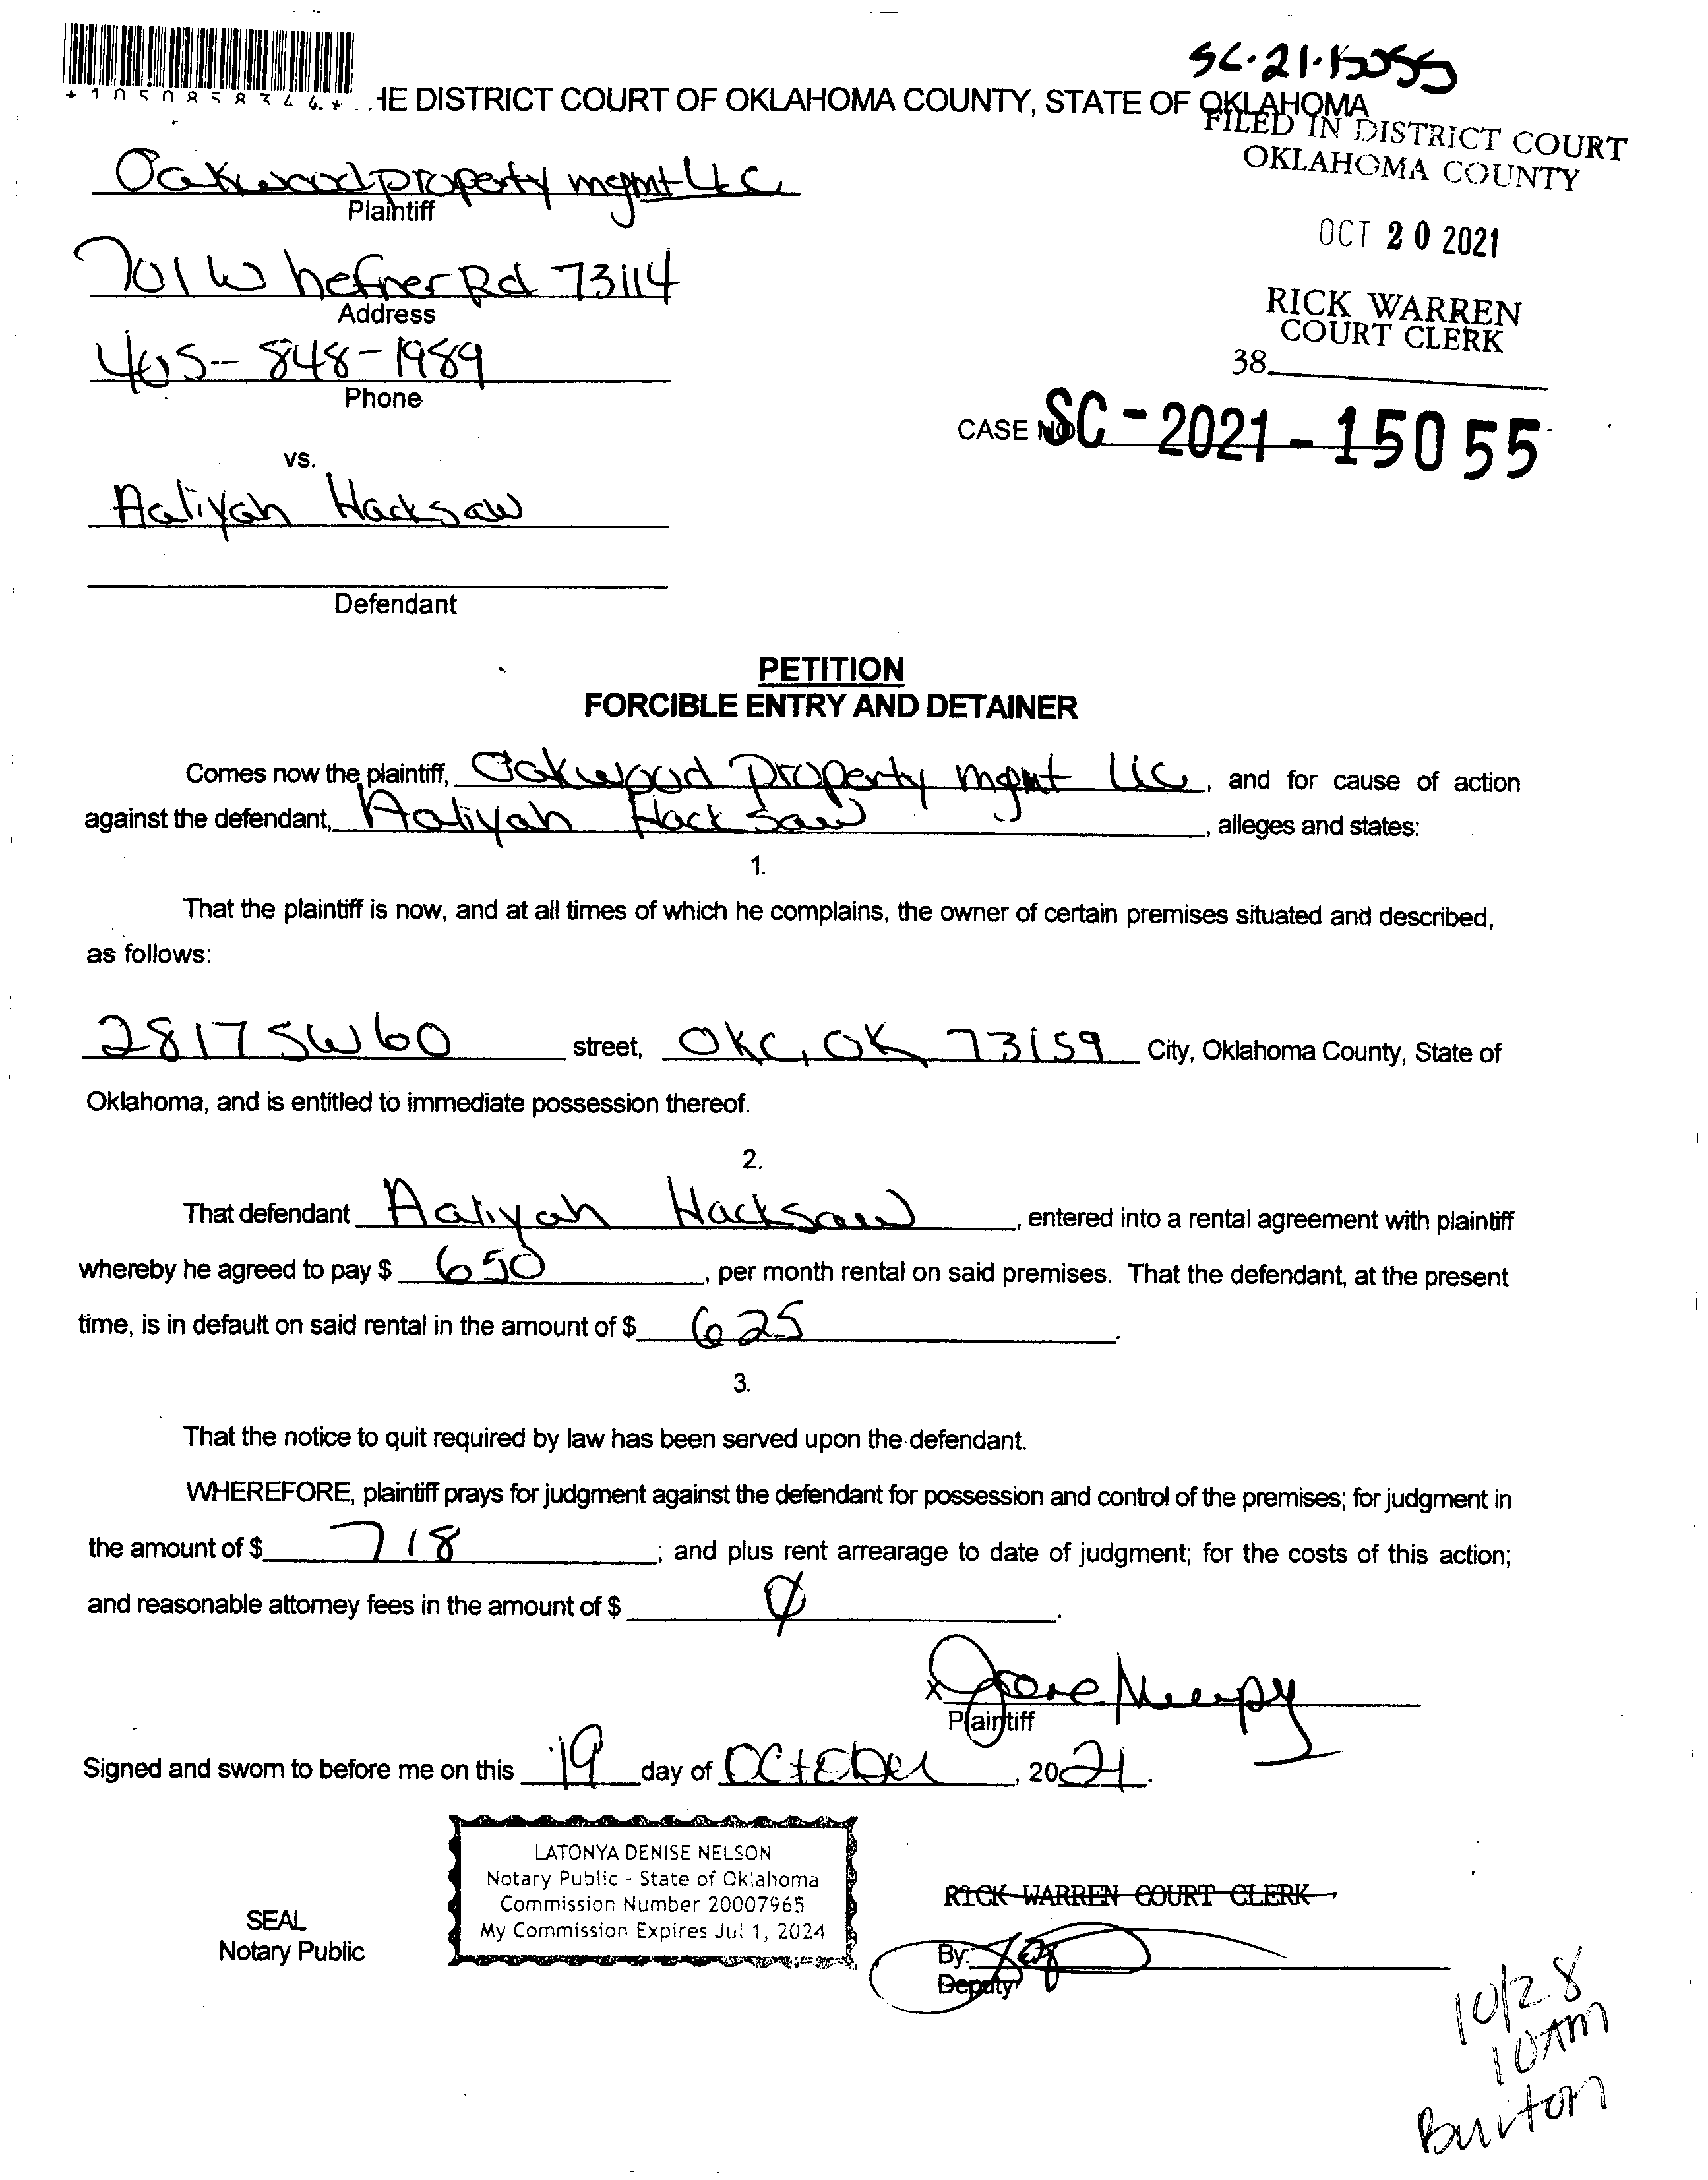 SC-21-15055
*1050858344* HE DISTRICT COURT OF OKLAHOMA COUNTY, STATE OF OKLAHOMA
FILED IN DISTRICT COURT
OKLAHOMA COUNTY
Oakwood property mgmt LLC
Plaintiff
OCT 20 2021
701 W hefner Rd 73114
Address
RICK WARREN
COURT CLERK
38
405-848-1989
Phone
CASE NO SC-2021-15055
vs.
Aaliyah Hacksaw
Defendant
PETITION
FORCIBLE ENTRY AND DETAINER
Comes now the plaintiff, Oakwood Property mgmt LLC, and for cause of action
against the defendant, Aaliyah Hacksaw, alleges and states:
1.
That the plaintiff is now, and at all times of which he complains, the owner of certain premises situated and described,
as follows:
2817 SW 60 street, OKC, OK 73159 City, Oklahoma County, State of
Oklahoma, and is entitled to immediate possession thereof.
2.
That defendant Aaliyah Hacksaw, entered into a rental agreement with plaintiff
whereby he agreed to pay $ 650, per month rental on said premises. That the defendant, at the present
time, is in default on said rental in the amount of $ 625.
3.
That the notice to quit required by law has been served upon the defendant.
WHEREFORE, plaintiff prays for judgment against the defendant for possession and control of the premises; for judgment in
the amount of $ 718; and plus rent arrearage to date of judgment; for the costs of this action;
and reasonable attorney fees in the amount of $ 0.
x
Plaintiff
Signed and sworn to before me on this 19 day of October, 2021.
LATONYA DENISE NELSON
Notary Public - State of Oklahoma
Commission Number 20007965
My Commission Expires Jul 1, 2024
SEAL
Notary Public
RICK WARREN COURT CLERK
By:
Deputy
10/28
10AM
Burton